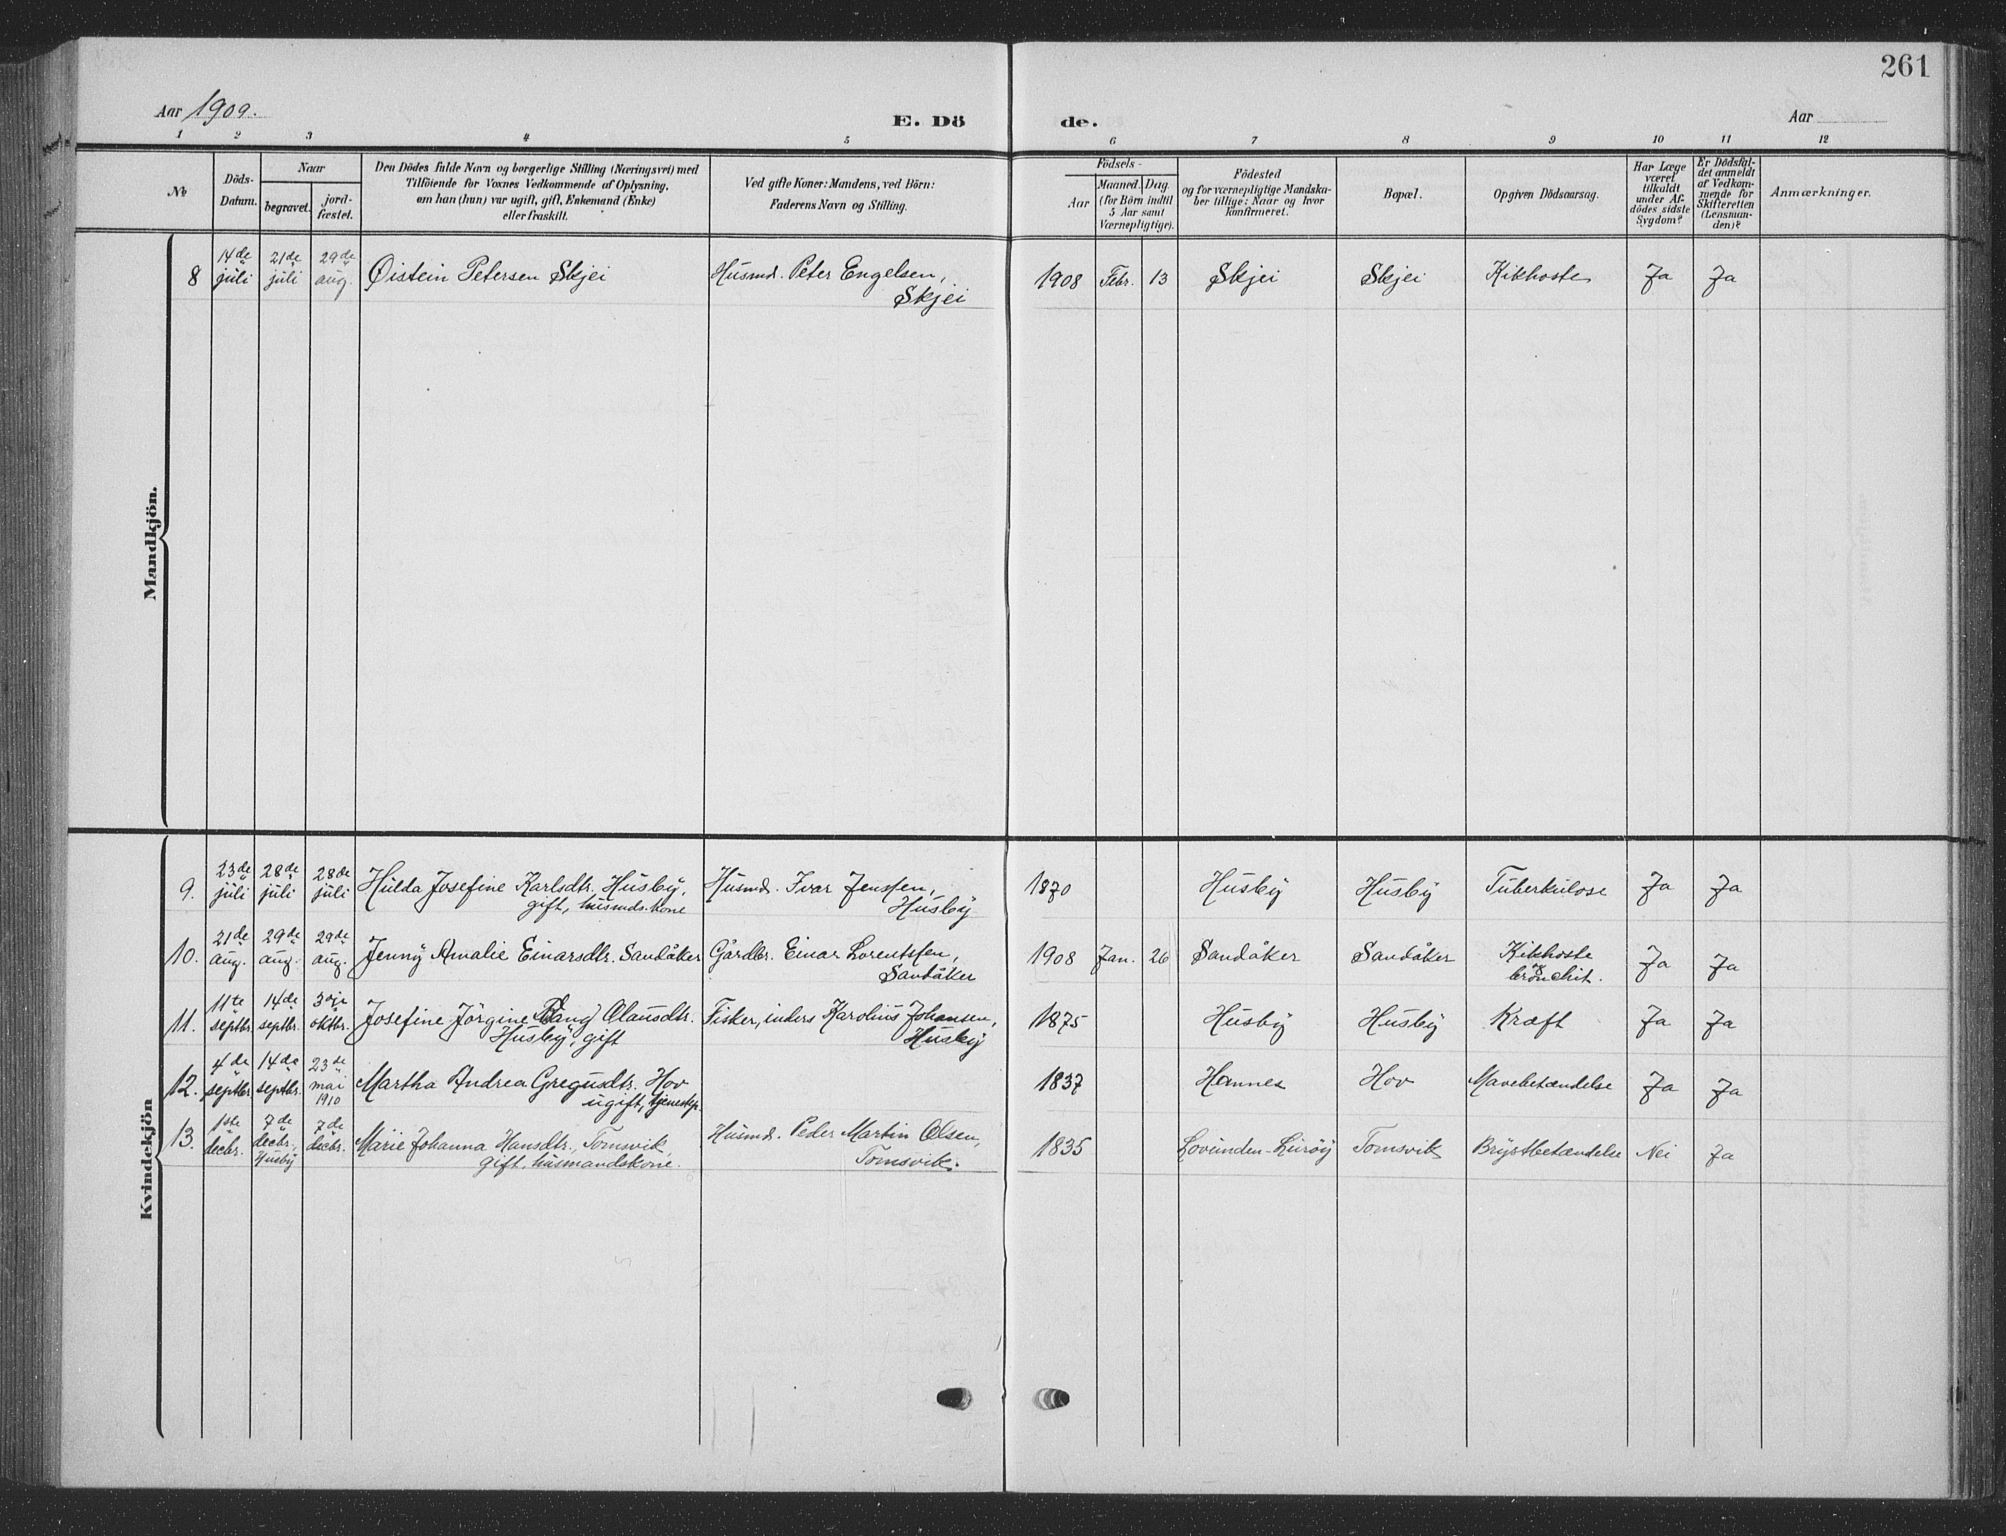 261
Aar 1909.
E. Dö de.
Aar
1 2 3 4 5 6 7 8 9 10 11 12
No
Döds-
Datum.
Naar
begravet.
jord-
fæstet.
Den Dödes fulde Navn og borgerlige Stilling (Næringsvei) med
Tilföiende for Voxnes Vedkommende af Oplysning,
om han (hun) var ugift, gift, Enkemand (Enke)
eller fraskilt.
Ved gifte Koner: Mandens, ved Börn:
Faderens Navn og Stilling.
Födsels-
Aar
Maaned. Dag.
(for Börn indtil
5 Aar samt
Værnepligtige).
Födested
og for værnepligtige Mandska-
ber tillige: Naar og hvor
konfirmeret.
Bopæl.
Opgiven Dödsaarsag.
Har Læge
været
tilkaldt
under Af-
dödes sidste
Sygdom?
Er Dödsfal-
det anmeldt
af Vedkom-
mende for
Skifteretten
(Lensman-
den)?
Anmærkninger.
Mandkjön.
14de 21de 29de
8 juli juli aug. Øistein Petersen Skjei Husmd. Peter Engelsen, 1908 Febr. 13 Skjei Skjei Kikhoste Ja Ja
Skjei
Kvindekjön
23de 28de 28de
9. juli juli juli Hulda Josefine Karlsdtr. Husby, Husmd. Ivar Jenssen, 1870 Husby Husby Tuberkulose Ja Ja
gift, husmds.kone Husby
21de 29de 29de
10. aug. aug. aug. Jenny Amalie Einarsdtr. Sandåker Gårdbr. Einar Lorentsen, 1908 Jan. 26 Sandåker Sandåker Kikhoste Ja Ja
Sandåker og bronchit.
11te 14de 3dje
11. septbr. septbr. oktbr. Josefine Jörgine Olausdtr. Fisker, inders Karolius Johansen, 1875 Husby Husby Kræft Ja Ja
Husby, gift Husby
4de 14de 23de
12. septbr. septbr. mai 1910 Martha Andrea Gregusdtr. Hov 1837 Hov Mavebetændelse Ja Ja
ugift, tjenestep.
1ste 7de 7de
13. decbr. decbr. Husby decbr. Marie Johanna Hansdtr., Tomsvik, Husmd. Peder Martin Olsen, 1835 Lovunden-Lurøy Tomsvik Brystbetændelse Nei Ja
gift, husmandskone. Tomsvik.